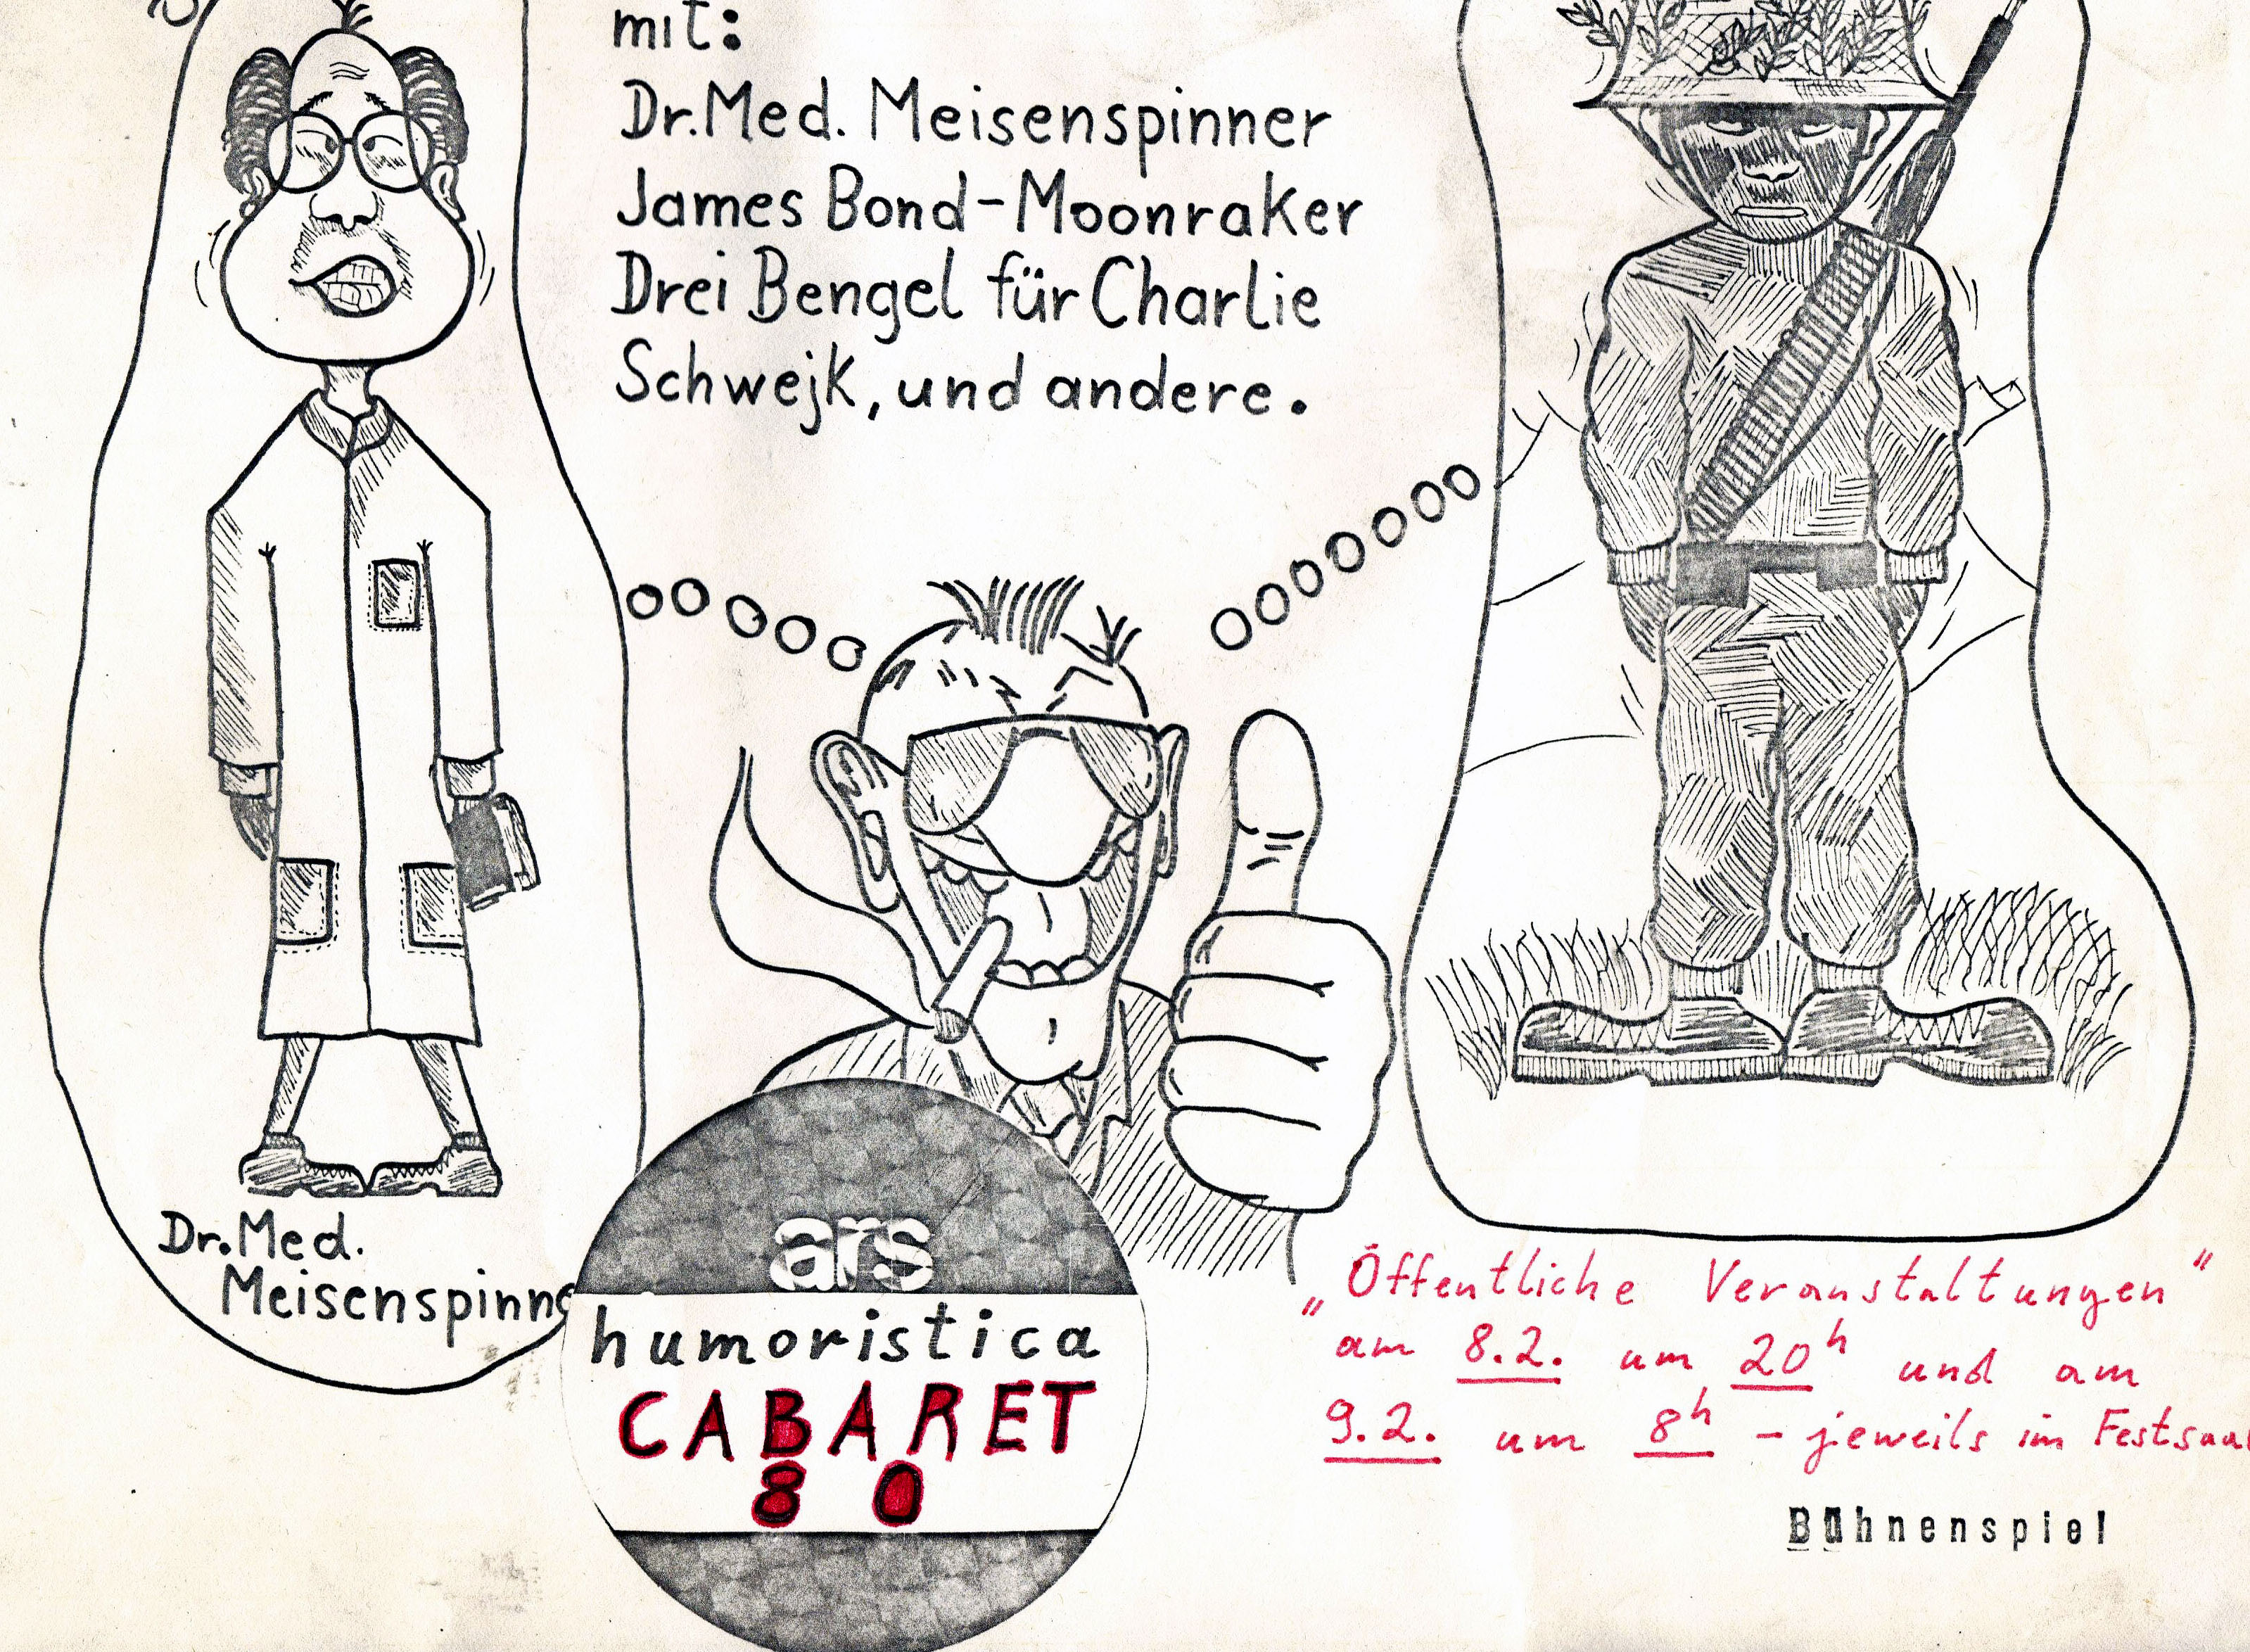 mit:
Dr.Med. Meisenspinner
James Bond-Moonraker
Drei Bengel für Charlie
Schwejk, und andere.
Dr. Med.
Meisenspinne
ars
humoristica
CABARET
80
„Öffentliche Veranstaltungen"
am 8.2. um 20h und am
9.2. um 8h - jeweils im Festsaal
Bühnenspiel